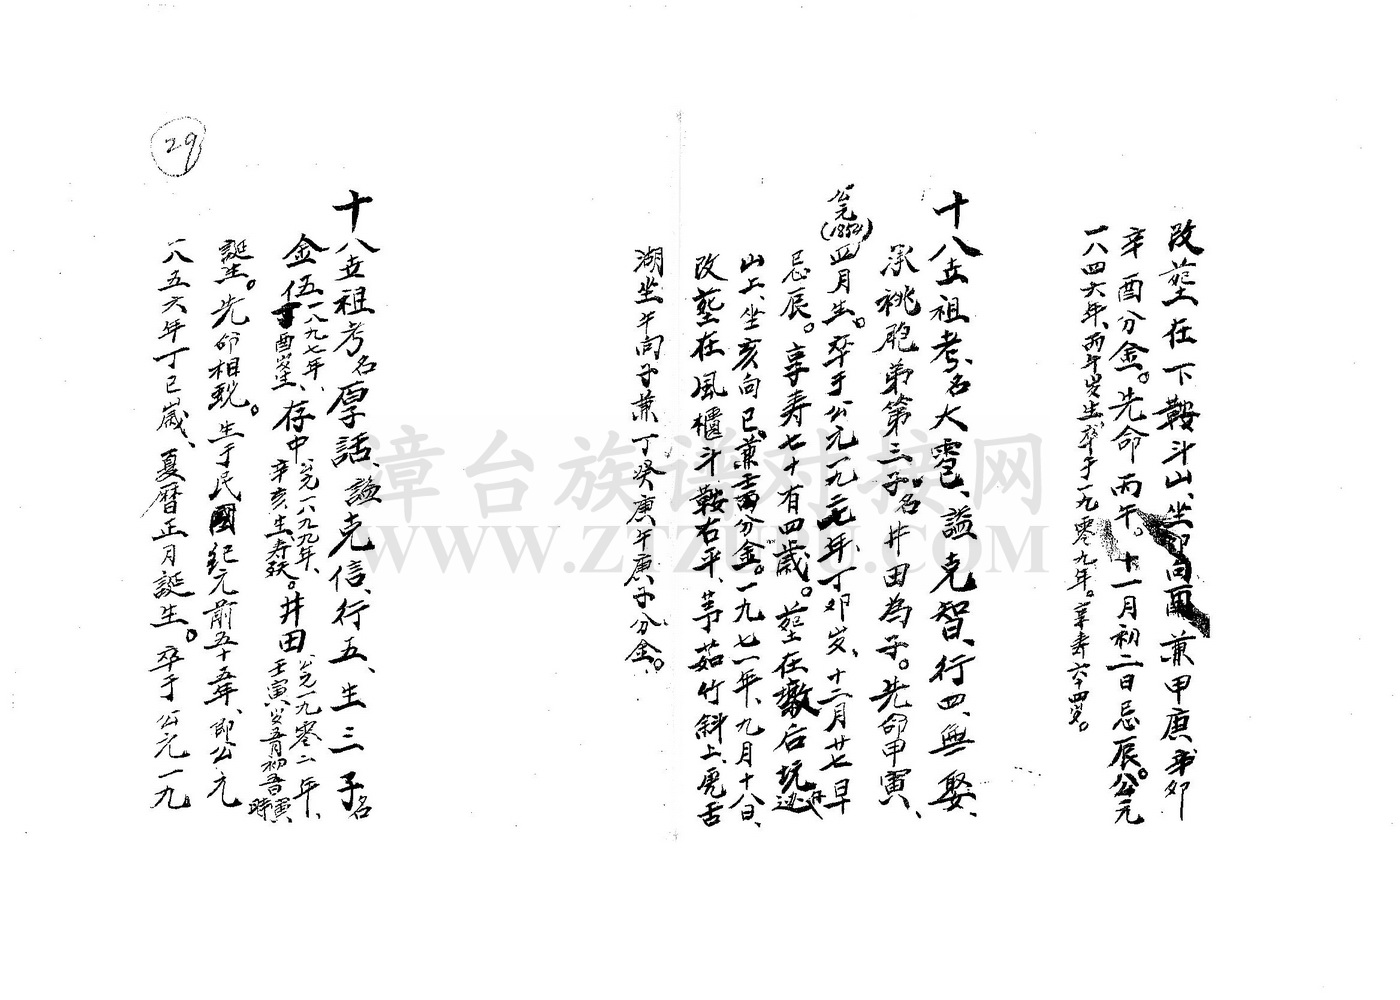 改塟在下鞍斗山、坐卯向酉兼甲庚
辛酉分金。先命丙午。十一月初二日忌辰。公元
一八四六年、丙午岁生、卒于一九零九年。享寿六十四岁。
十八世祖考、名大雹、謚克智、行四、無娶、
承祧胞弟第三子、名井田為子。先命甲寅、
公元(1854)四月生。卒于公元一九二七年、丁卯岁、十二月廿七早
忌辰。享寿七十有四歲。塟在墩后坑
山上、坐亥向巳、兼壬丙分金。一九七一年、九月十八日、
改塟在風櫃斗鞍右平、茅茹竹斜上、虎舌
湖坐午向子兼丁癸庚午庚子分金。
十八世祖考名厚話、謚克信、行五、生三子名
金伍一八九七年、丁酉岁生、存中公元一八九九年、辛亥生寿殀。井田公元一九零二年、壬寅岁五月初五日寅時
誕生。先命相蛇。生于民國纪元前五十五年、即公元
一八五六年丁巳歲、夏曆正月誕生。卒于公元一九
29
漳台族谱对接网
WWW.ZTZUPU.COM